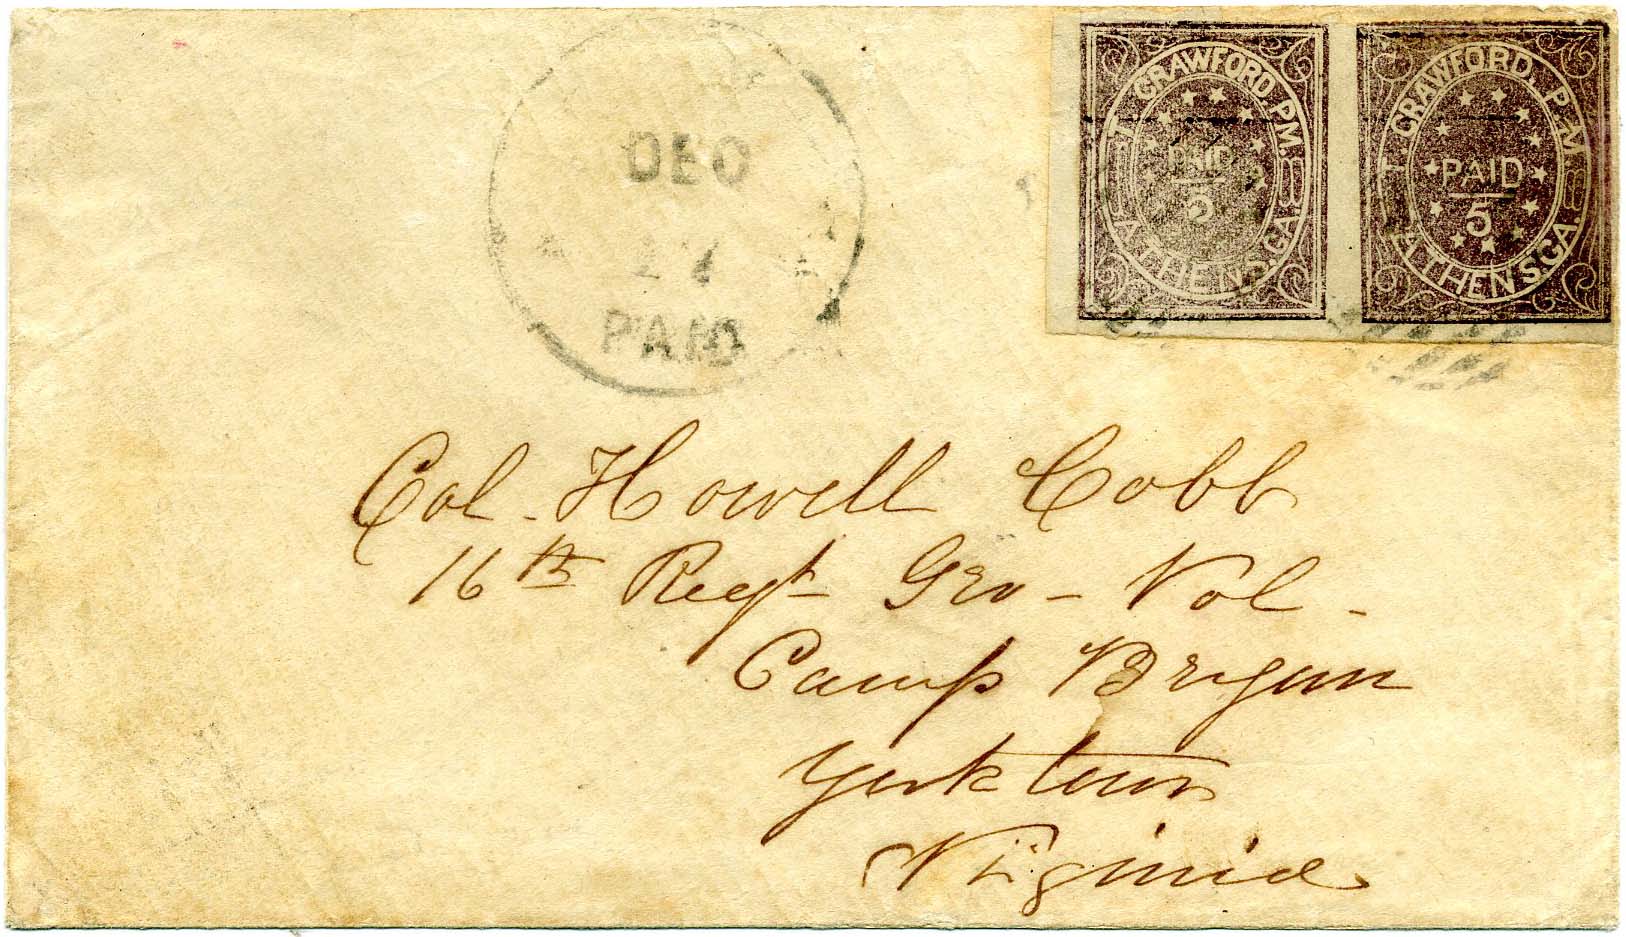 T. CRAWFORD. P.M.
PAID
5
ATHENS. GA.
T. CRAWFORD. P.M.
PAID
5
ATHENS. GA.
DEC
17
PAID
Col. Howell Cobb
16th Regt Geo - Vol -
Camp Bryan
Yorktown
Virginia